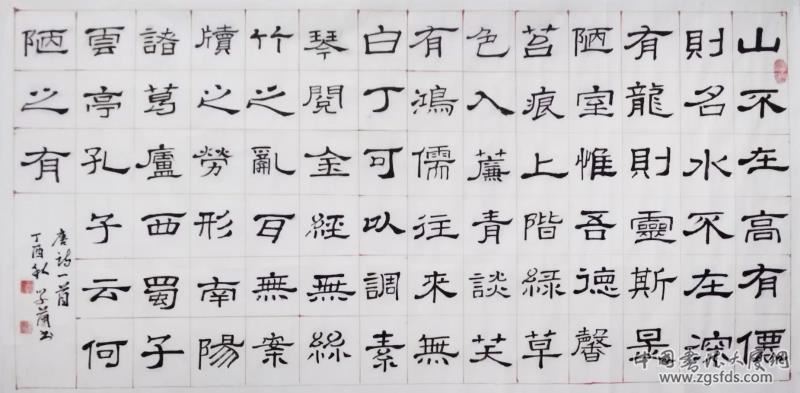 山不在高有僊
則名水不在深
有龍則靈斯是
陋室惟吾德馨
苔痕上階綠草
色入簾青談笑
有鴻儒往來無
白丁可以調素
琴閱金經無絲
竹之亂耳無案
牘之勞形南陽
諸葛廬西蜀子
雲亭孔子云何
陋之有
唐詩一首
丁酉秋
中國書法大廈網
www.zgsfds.com